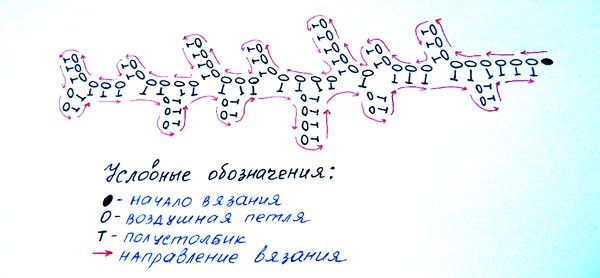 Условные обозначения:
- начало вязания
О - воздушная петля
Т - полустолбик
→ направление вязания